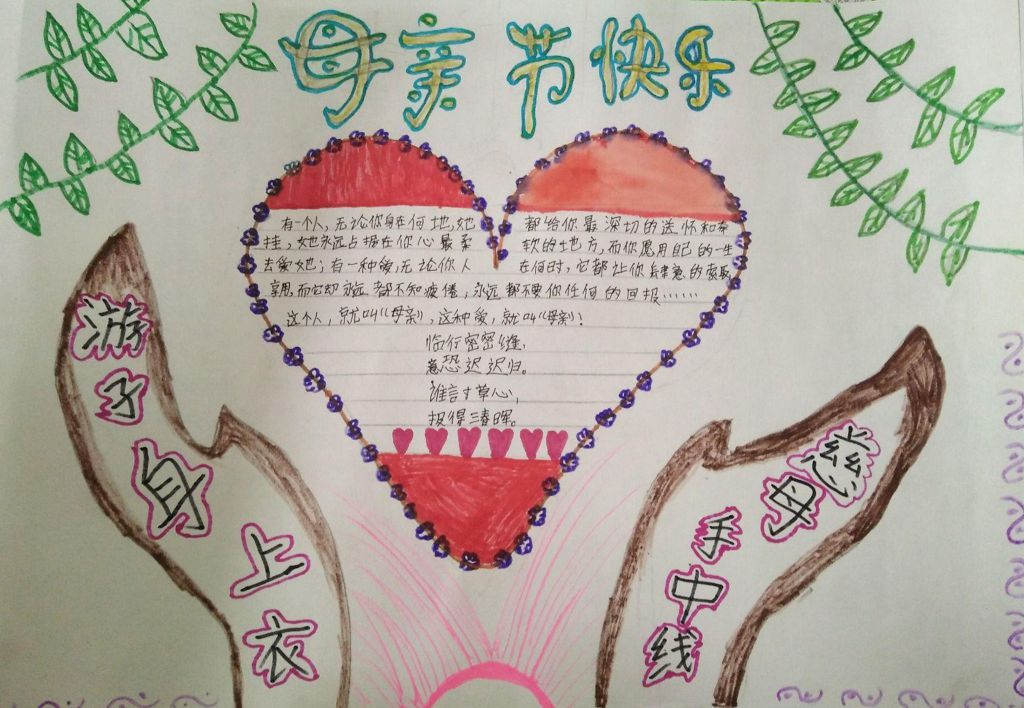 母亲节快乐
有一个人，无论你身在何地，她都给你最深切的送怀和牵
挂，她永远占据在你心最柔软的地方，而你愿用自己的一生
去爱她；有一种爱，无论你人在何时，它都让你肆意的索取
享用，而它却永远都不知疲倦，永远都不要你任何的回报……
这个人，就叫《母亲》，这种爱，就叫《母亲》！
临行密密缝，
意恐迟迟归。
谁言寸草心，
报得三春晖。
慈母手中线
游子身上衣